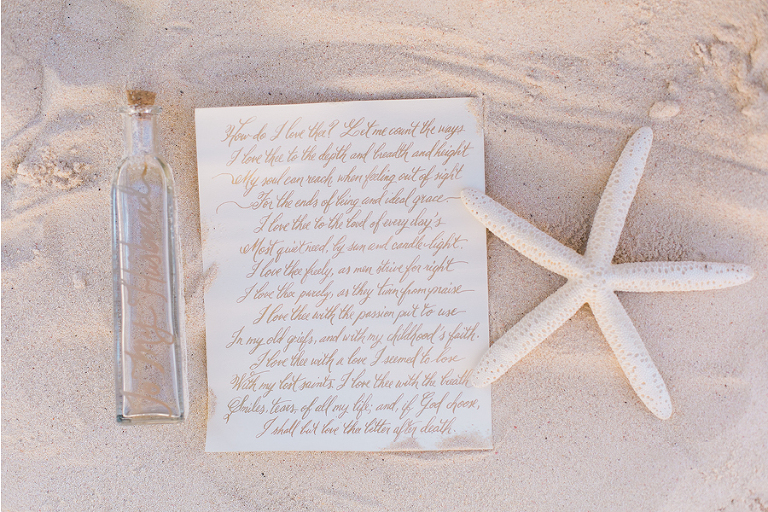 How do I love thee? Let me count the ways.
I love thee to the depth and breadth and height
My soul can reach, when feeling out of sight
For the ends of being and ideal grace
I love thee to the level of every day's
Most quiet need, by sun and candle-light.
I love thee freely, as men strive for right
I love thee purely, as they turn from praise
I love thee with the passion put to use
In my old griefs, and with my childhood's faith.
I love thee with a love I seemed to lose
With my lost saints. I love thee with the breath,
Smiles, tears, of all my life; and, if God choose,
I shall but love thee better after death.
Husband